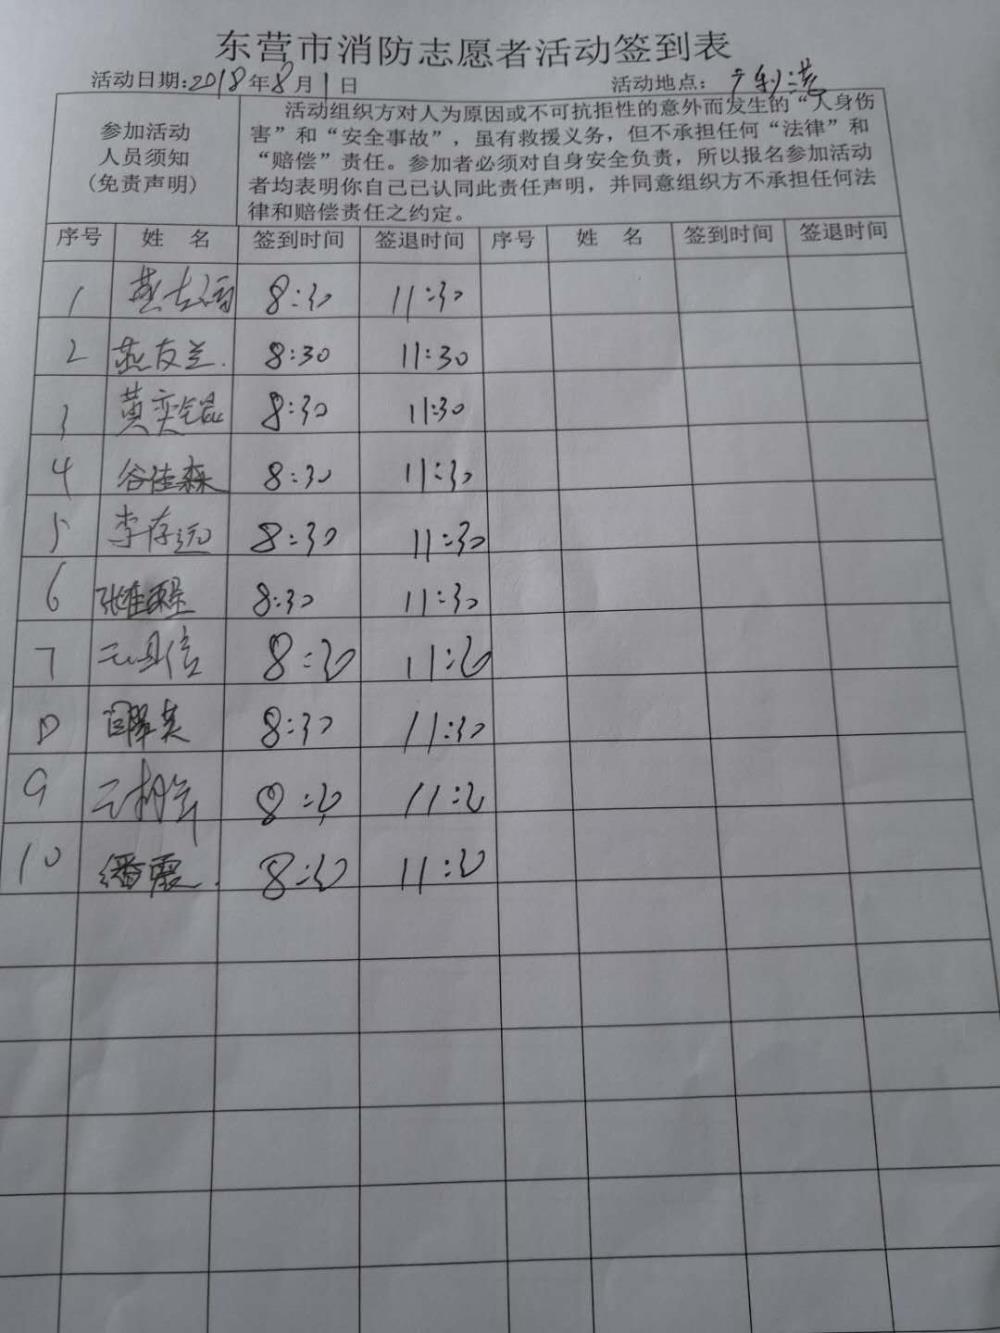 东营市消防志愿者活动签到表
活动日期:2018年8月1日 活动地点: 广利港
参加活动
人员须知
(免责声明)
活动组织方对人为原因或不可抗拒性的意外而发生的“人身伤
害”和“安全事故”，虽有救援义务，但不承担任何“法律”和
“赔偿”责任。参加者必须对自身安全负责，所以报名参加活动
者均表明你自己已认同此责任声明，并同意组织方不承担任何法
律和赔偿责任之约定。
序号 姓 名 签到时间 签退时间 序号 姓 名 签到时间 签退时间
1 8:30 11:30
2 燕友兰. 8:30 11:30
3 黄奕锟 8:30 11:30
4 谷佳森 8:30 11:30
5 李存远 8:30 11:30
6 8:30 11:30
7 8:30 11:30
8 8:30 11:30
9 8:30 11:30
10 潘震. 8:30 11:30